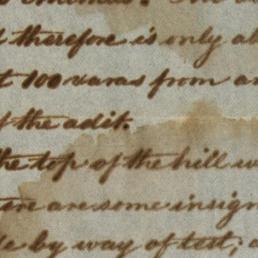 therefore is only
100 varas from
f the adit.
the top of the hill
are some insign
by way of test;